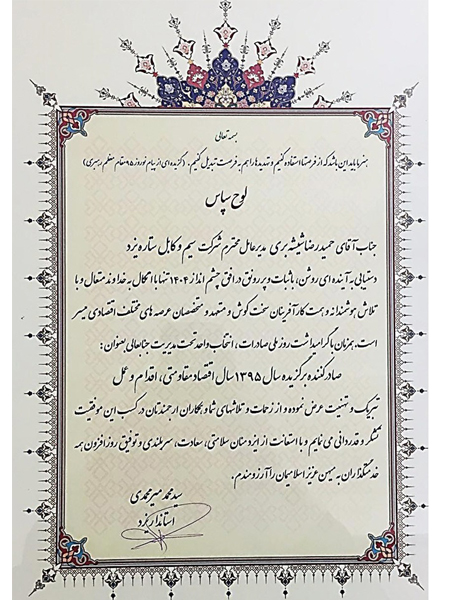 بسمه تعالی
هنر ما باید این باشد که از فرصتها استفاده کنیم و تهدیدها را هم به فرصت تبدیل کنیم. (گزیده ای از پیام نوروز ۹۵ مقام معظم رهبری)
لوح سپاس
جناب آقای حمیدرضا شیشه بری مدیرعامل محترم شرکت سیم و کابل ستاره یزد
دستیابی به آینده ای روشن، با ثبات و پر رونق در افق چشم انداز ۱۴۰۴ تنها با اتکال به خداوند متعال و با
تلاش هوشمندانه و همت کارآفرینان سخت کوش و متعهد و متخصصان عرصه های مختلف اقتصادی میسر
است. همزمان با گرامیداشت روز ملی صادرات، انتخاب واحد تحت مدیریت جنابعالی بعنوان:
صادرکننده برگزیده سال ۱۳۹۵ سال اقتصاد مقاومتی، اقدام و عمل
تبریک و تهنیت عرض نموده و از زحمات و تلاشهای شما و همکاران ارجمندتان در کسب این موفقیت
تشکر و قدردانی می نمایم و با استعانت از ایزد منان سلامتی، سعادت، سربلندی و توفیق روزافزون همه
خدمتگذاران به میهن عزیز اسلامیمان را آرزومندم.
سید محمد میرمحمدی
استاندار یزد